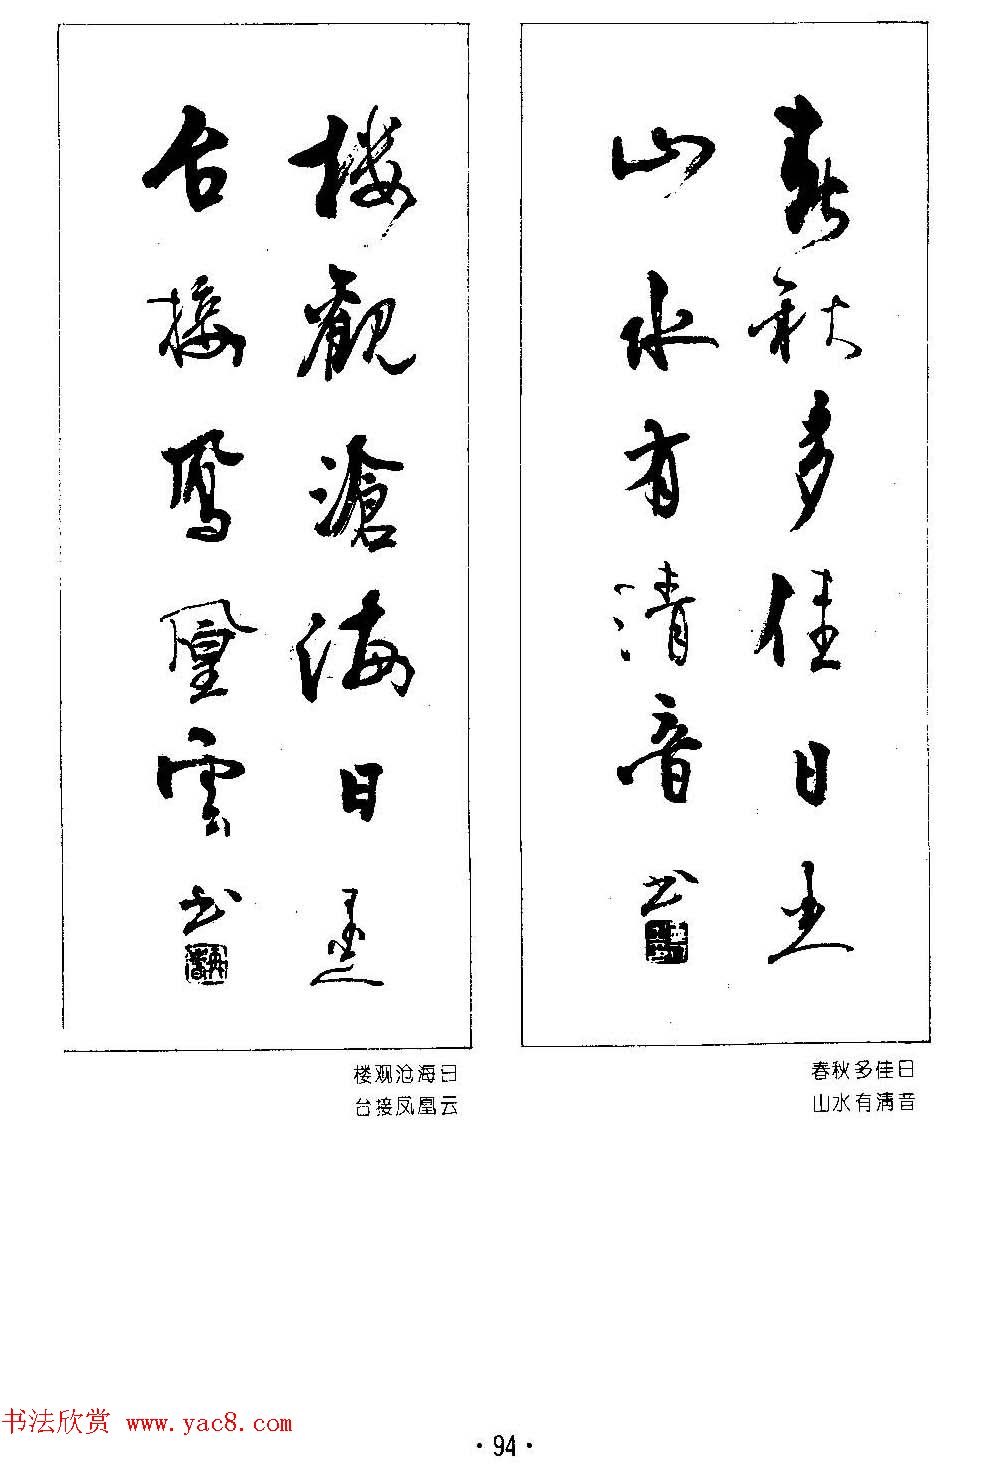 春秋多佳日
山水有清音
书
楼觀滄海日
台接鳳凰雲
书
春秋多佳日
山水有清音
楼观沧海日
台接凤凰云
书法欣赏 www.yac8.com
·94·